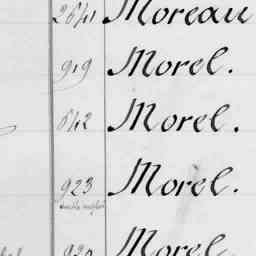 2641 Moreau
919 Morel.
642 Morel.
923 Morel.
920 Morel.